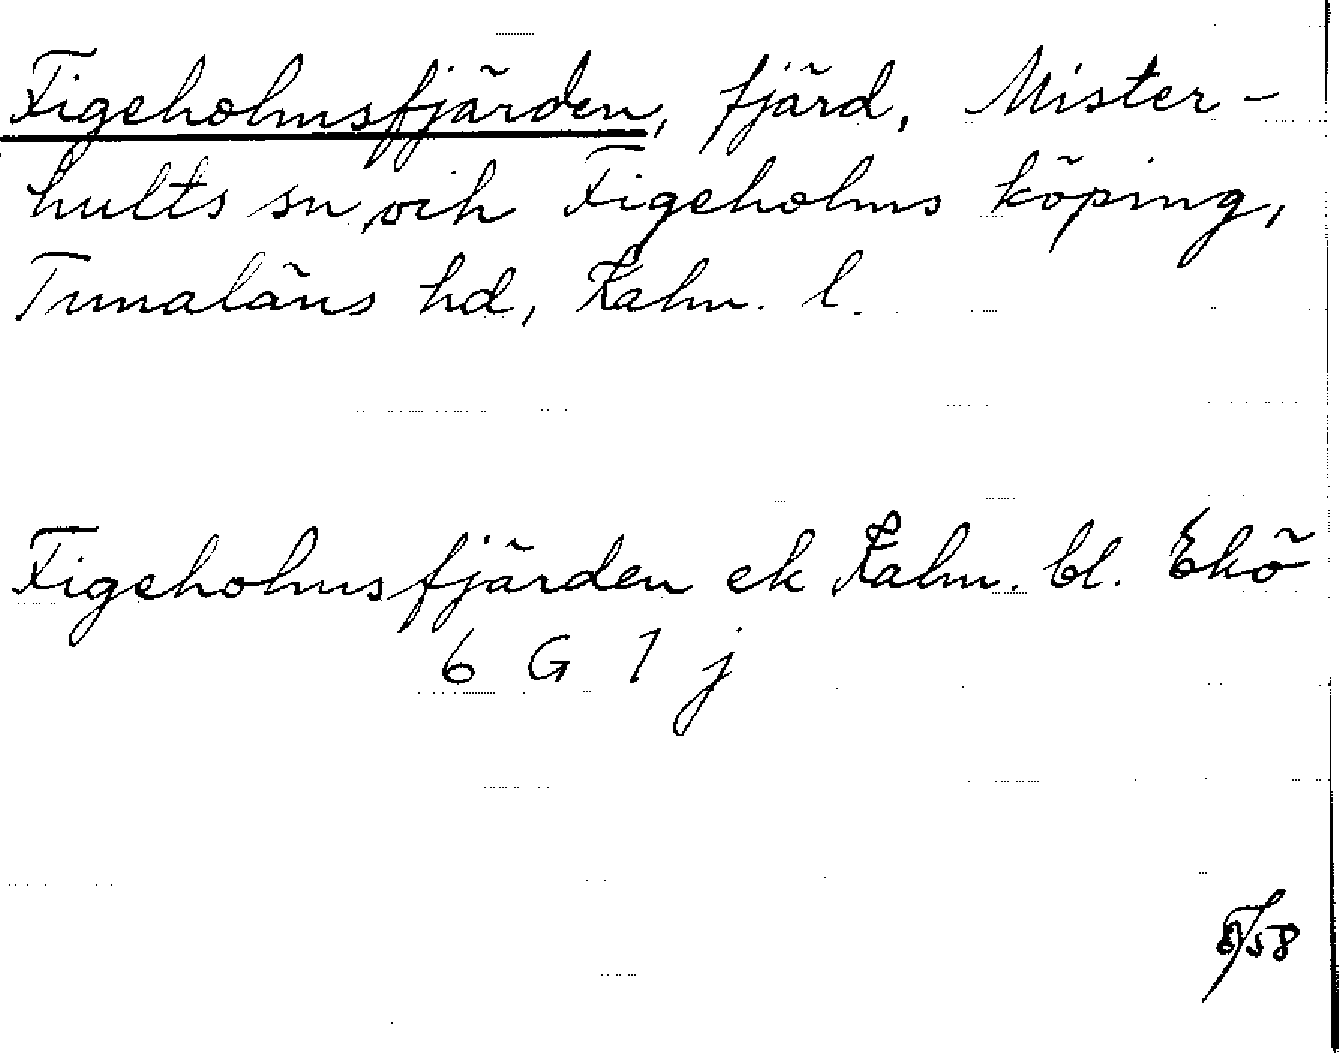 Figeholmsfjärden, fjärd, Mister-
hults sn, och Figeholms köping,
Tunaläns hd, Kalm. l.
Figeholmsfjärden ek Kalm. bl. Ekö
6 G 1 j